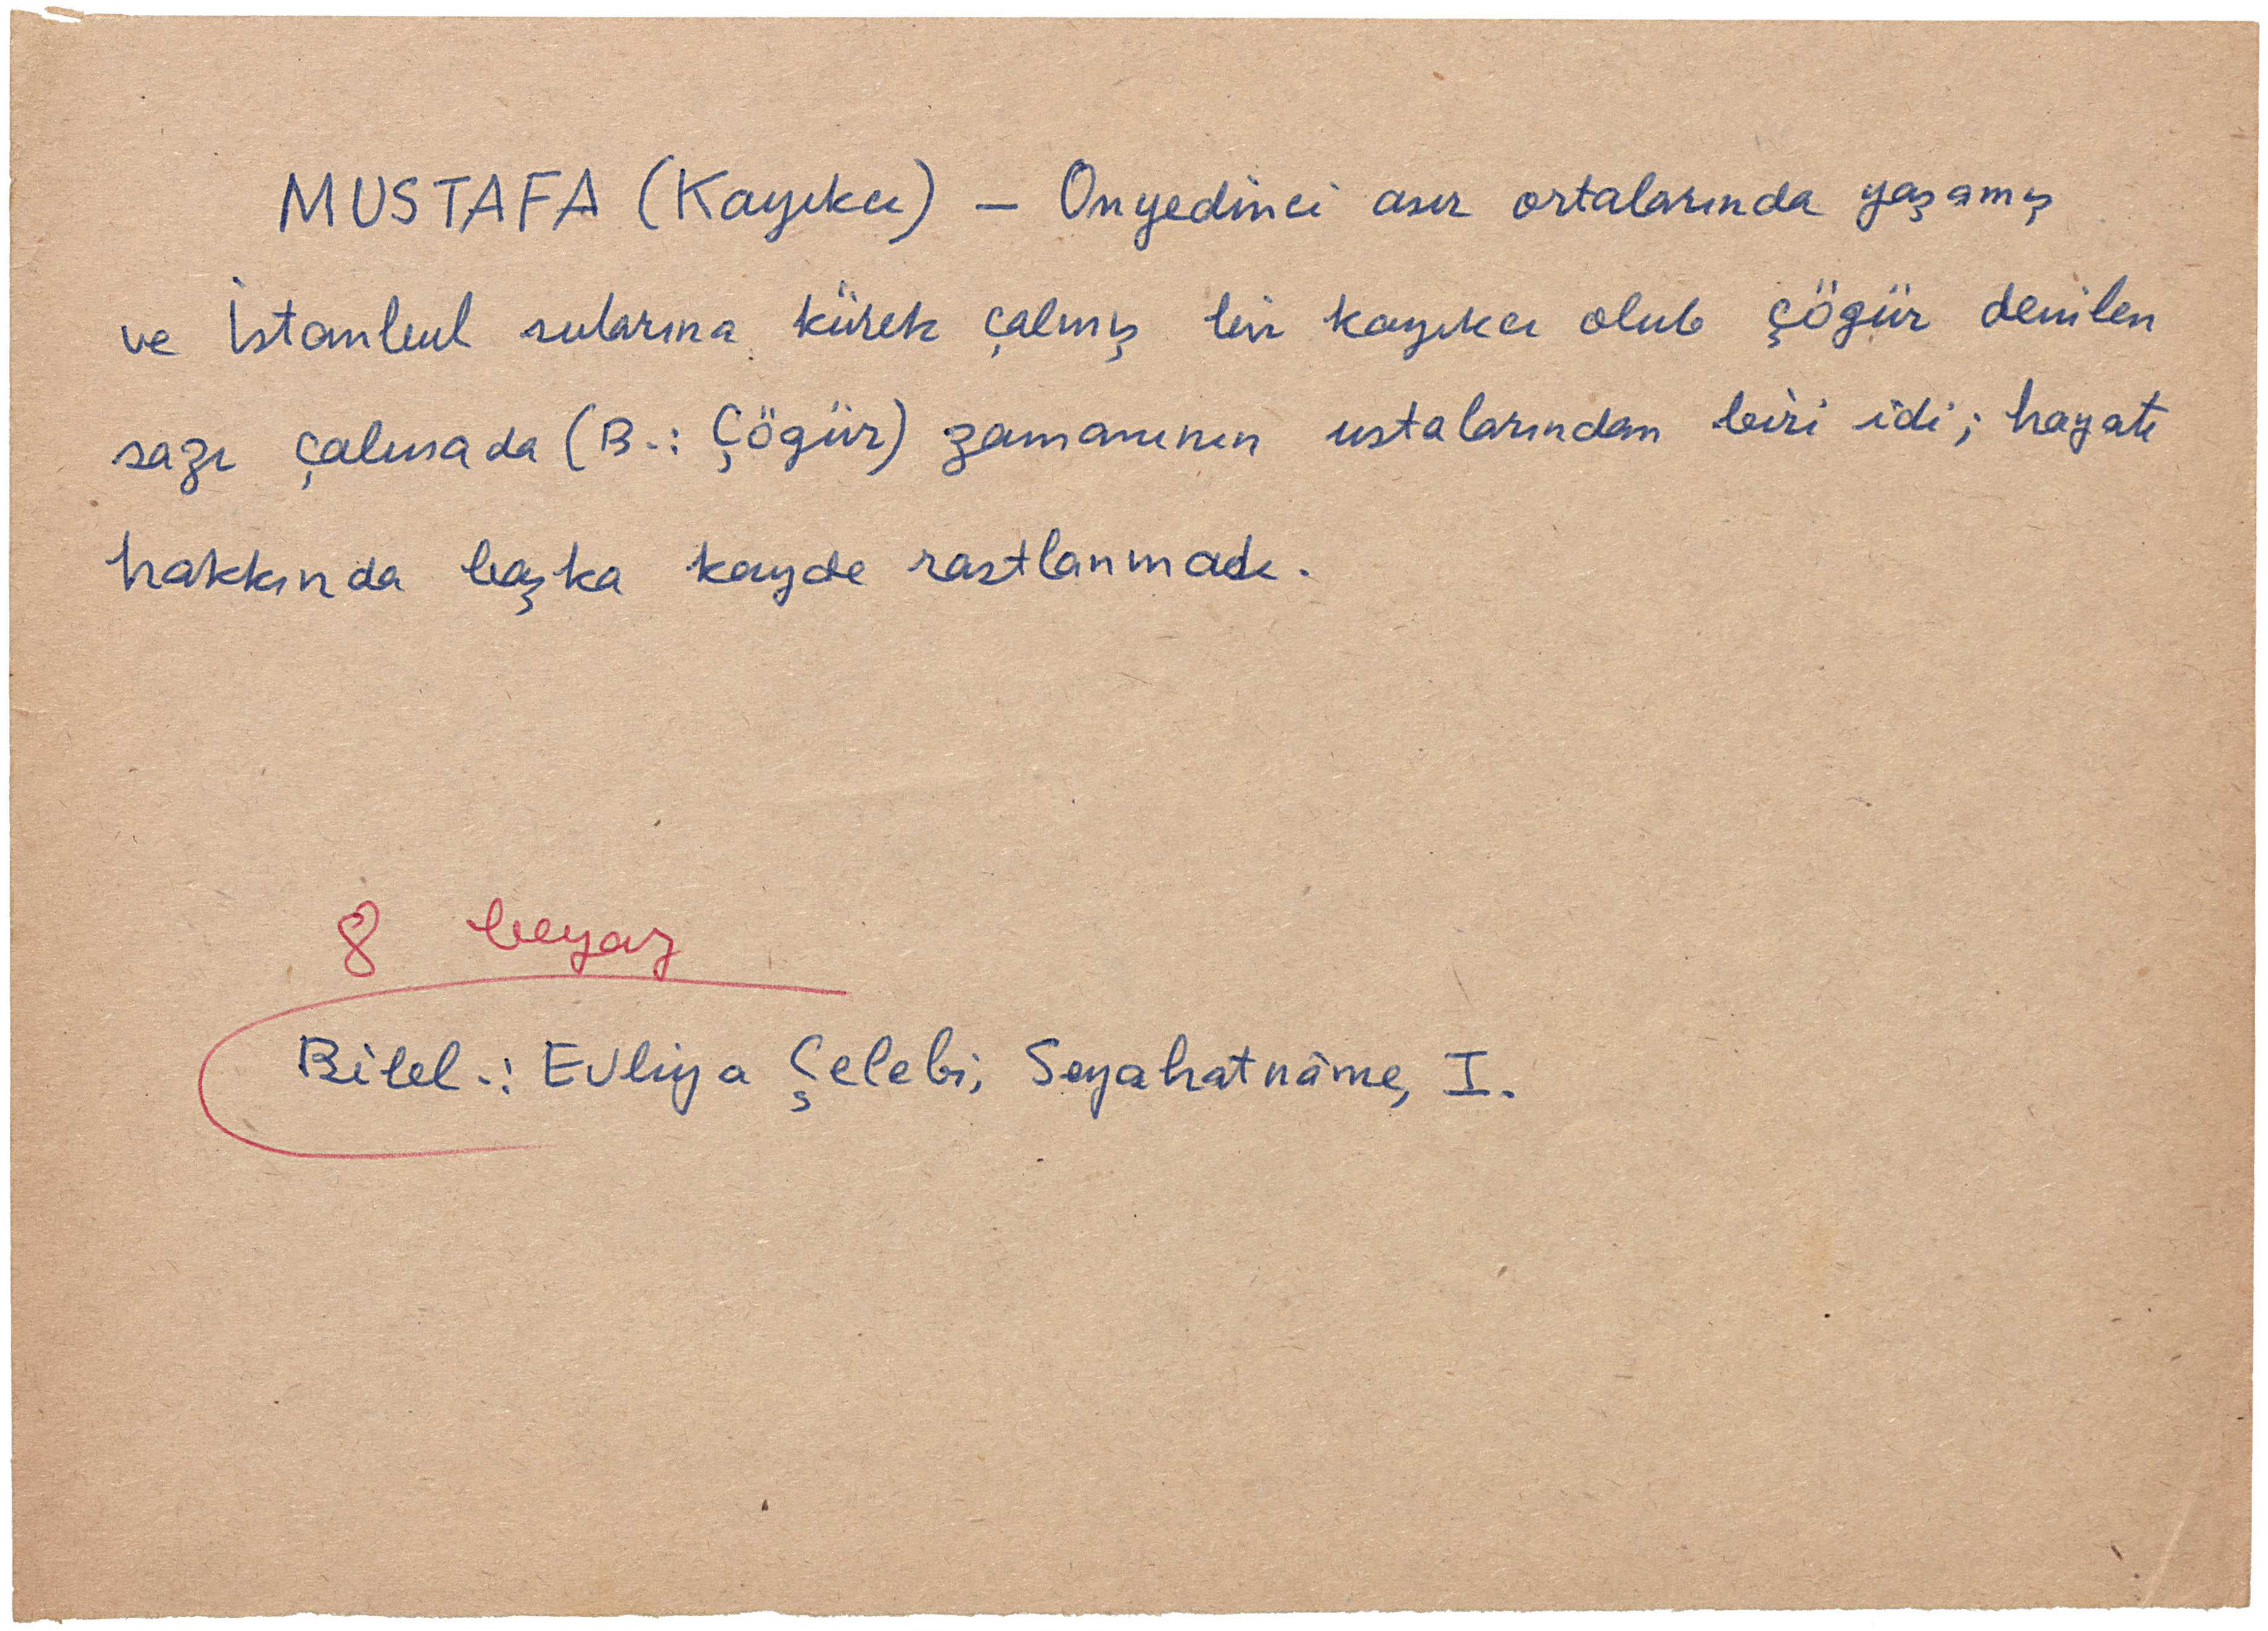 MUSTAFA (Kayıkcı) — Onyedinci asır ortalarında yaşamış
ve İstanbul sularına kürek çalmış bir kayıkcı olub çögür denilen
sazı çalmada (B.: Çögür) zamanının ustalarından biri idi; hayatı
hakkında başka kayde rastlanmadı.
8 beyaz
Bibl.: Evliya Çelebi, Seyahatnâme, I.